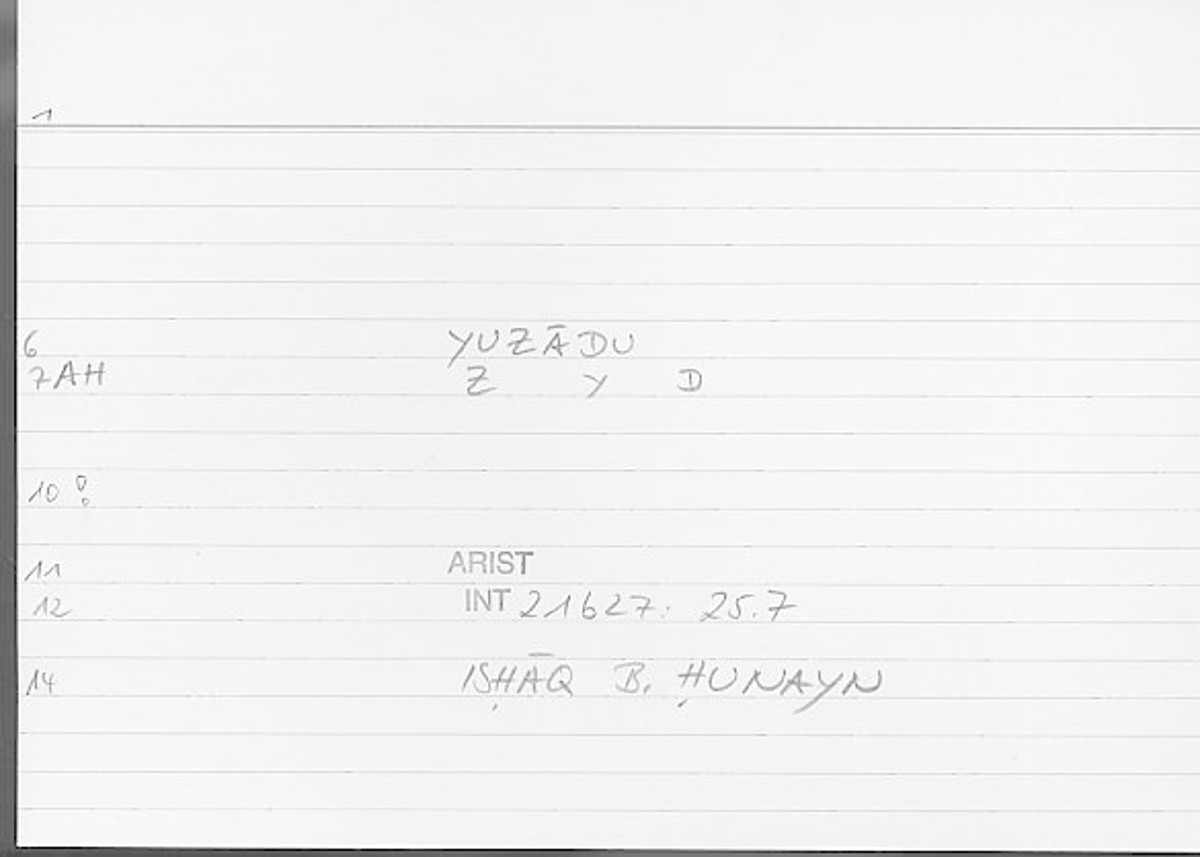 1
6 YUZĀDU
7AH Z Y D
10 !
11 ARIST
12 INT 21627: 25.7
14 ISḤĀQ B. ḤUNAYN